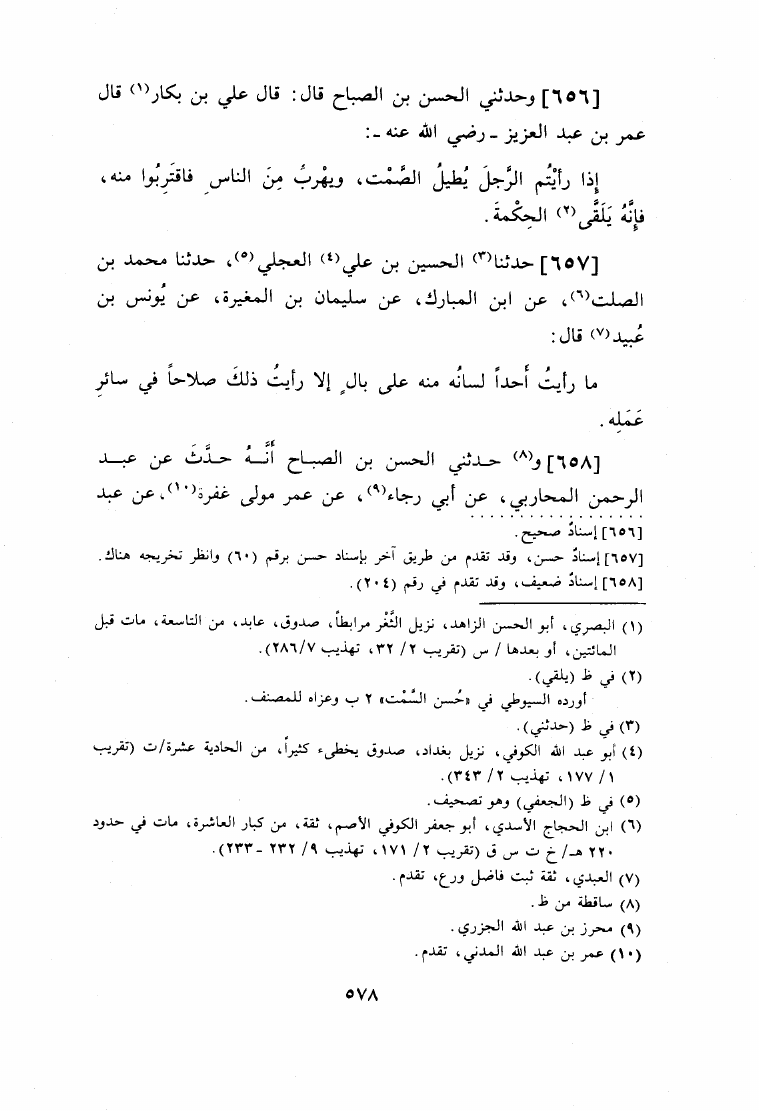 [٦٥٦] وحدثني الحسن بن الصباح قال: قال علي بن بكار(١) قال
عمر بن عبد العزيز ـ رضي الله عنه ـ:
إذا رأيْتُم الرَّجلَ يُطيلُ الصَّمْت، ويهْربُ مِنَ الناس فاقتَرِبُوا منه،
فإنَّهُ يَلَقَّى(٢) الحِكْمةَ.
[٦٥٧] حدثنا(٣) الحسين بن علي(٤) العجلي(٥)، حدثنا محمد بن
الصلت(٦)، عن ابن المبارك، عن سليمان بن المغيرة، عن يُونس بن
عُبيد(٧) قال:
ما رأيتُ أحداً لسانُه منه على بالٍ إلا رأيتُ ذلكَ صلاحاً في سائرِ
عَمَلِه.
[٦٥٨] و(٨) حدثني الحسن بن الصباح أنَّهُ حدَّثَ عن عبد
الرحمن المحاربي، عن أبي رجاء(٩)، عن عمر مولى غفرة(١٠)، عن عبد
[٦٥٦] إسنادٌ صحيح.
[٦٥٧] إسنادٌ حسن، وقد تقدم من طريق آخر بإسناد حسن برقم (٦٠) وانظر تخريجه هناك.
[٦٥٨] إسنادٌ ضعيف، وقد تقدم في رقم (٢٠٤).
(١) البصري، أبو الحسن الزاهد، نزيل الثَّغْر مرابطاً، صدوق، عابد، من التاسعة، مات قبل
المائتين، أو بعدها / س (تقريب ٢/ ٣٢، تهذيب ٢٨٦/٧).
(٢) في ظ (يلقي).
أورده السيوطي في «حُسن السَّمْت» ٢ ب وعزاه للمصنف.
(٣) في ظ (حدثني).
(٤) أبو عبد الله الكوفي، نزيل بغداد، صدوق يخطىء كثيراً، من الحادية عشرة/ت (تقريب
١/ ١٧٧، تهذيب ٢/ ٣٤٣).
(٥) في ظ (الجعفي) وهو تصحيف.
(٦) ابن الحجاج الأسدي، أبو جعفر الكوفي الأصم، ثقة، من كبار العاشرة، مات في حدود
٢٢٠ هـ/ خ ت س ق (تقريب ٢/ ١٧١، تهذيب ٩/ ٢٣٢ ـ ٢٣٣).
(٧) العبدي، ثقة ثبت فاضل ورع، تقدم.
(٨) ساقطة من ظ.
(٩) محرز بن عبد الله الجزري.
(١٠) عمر بن عبد الله المدني، تقدم.
٥٧٨